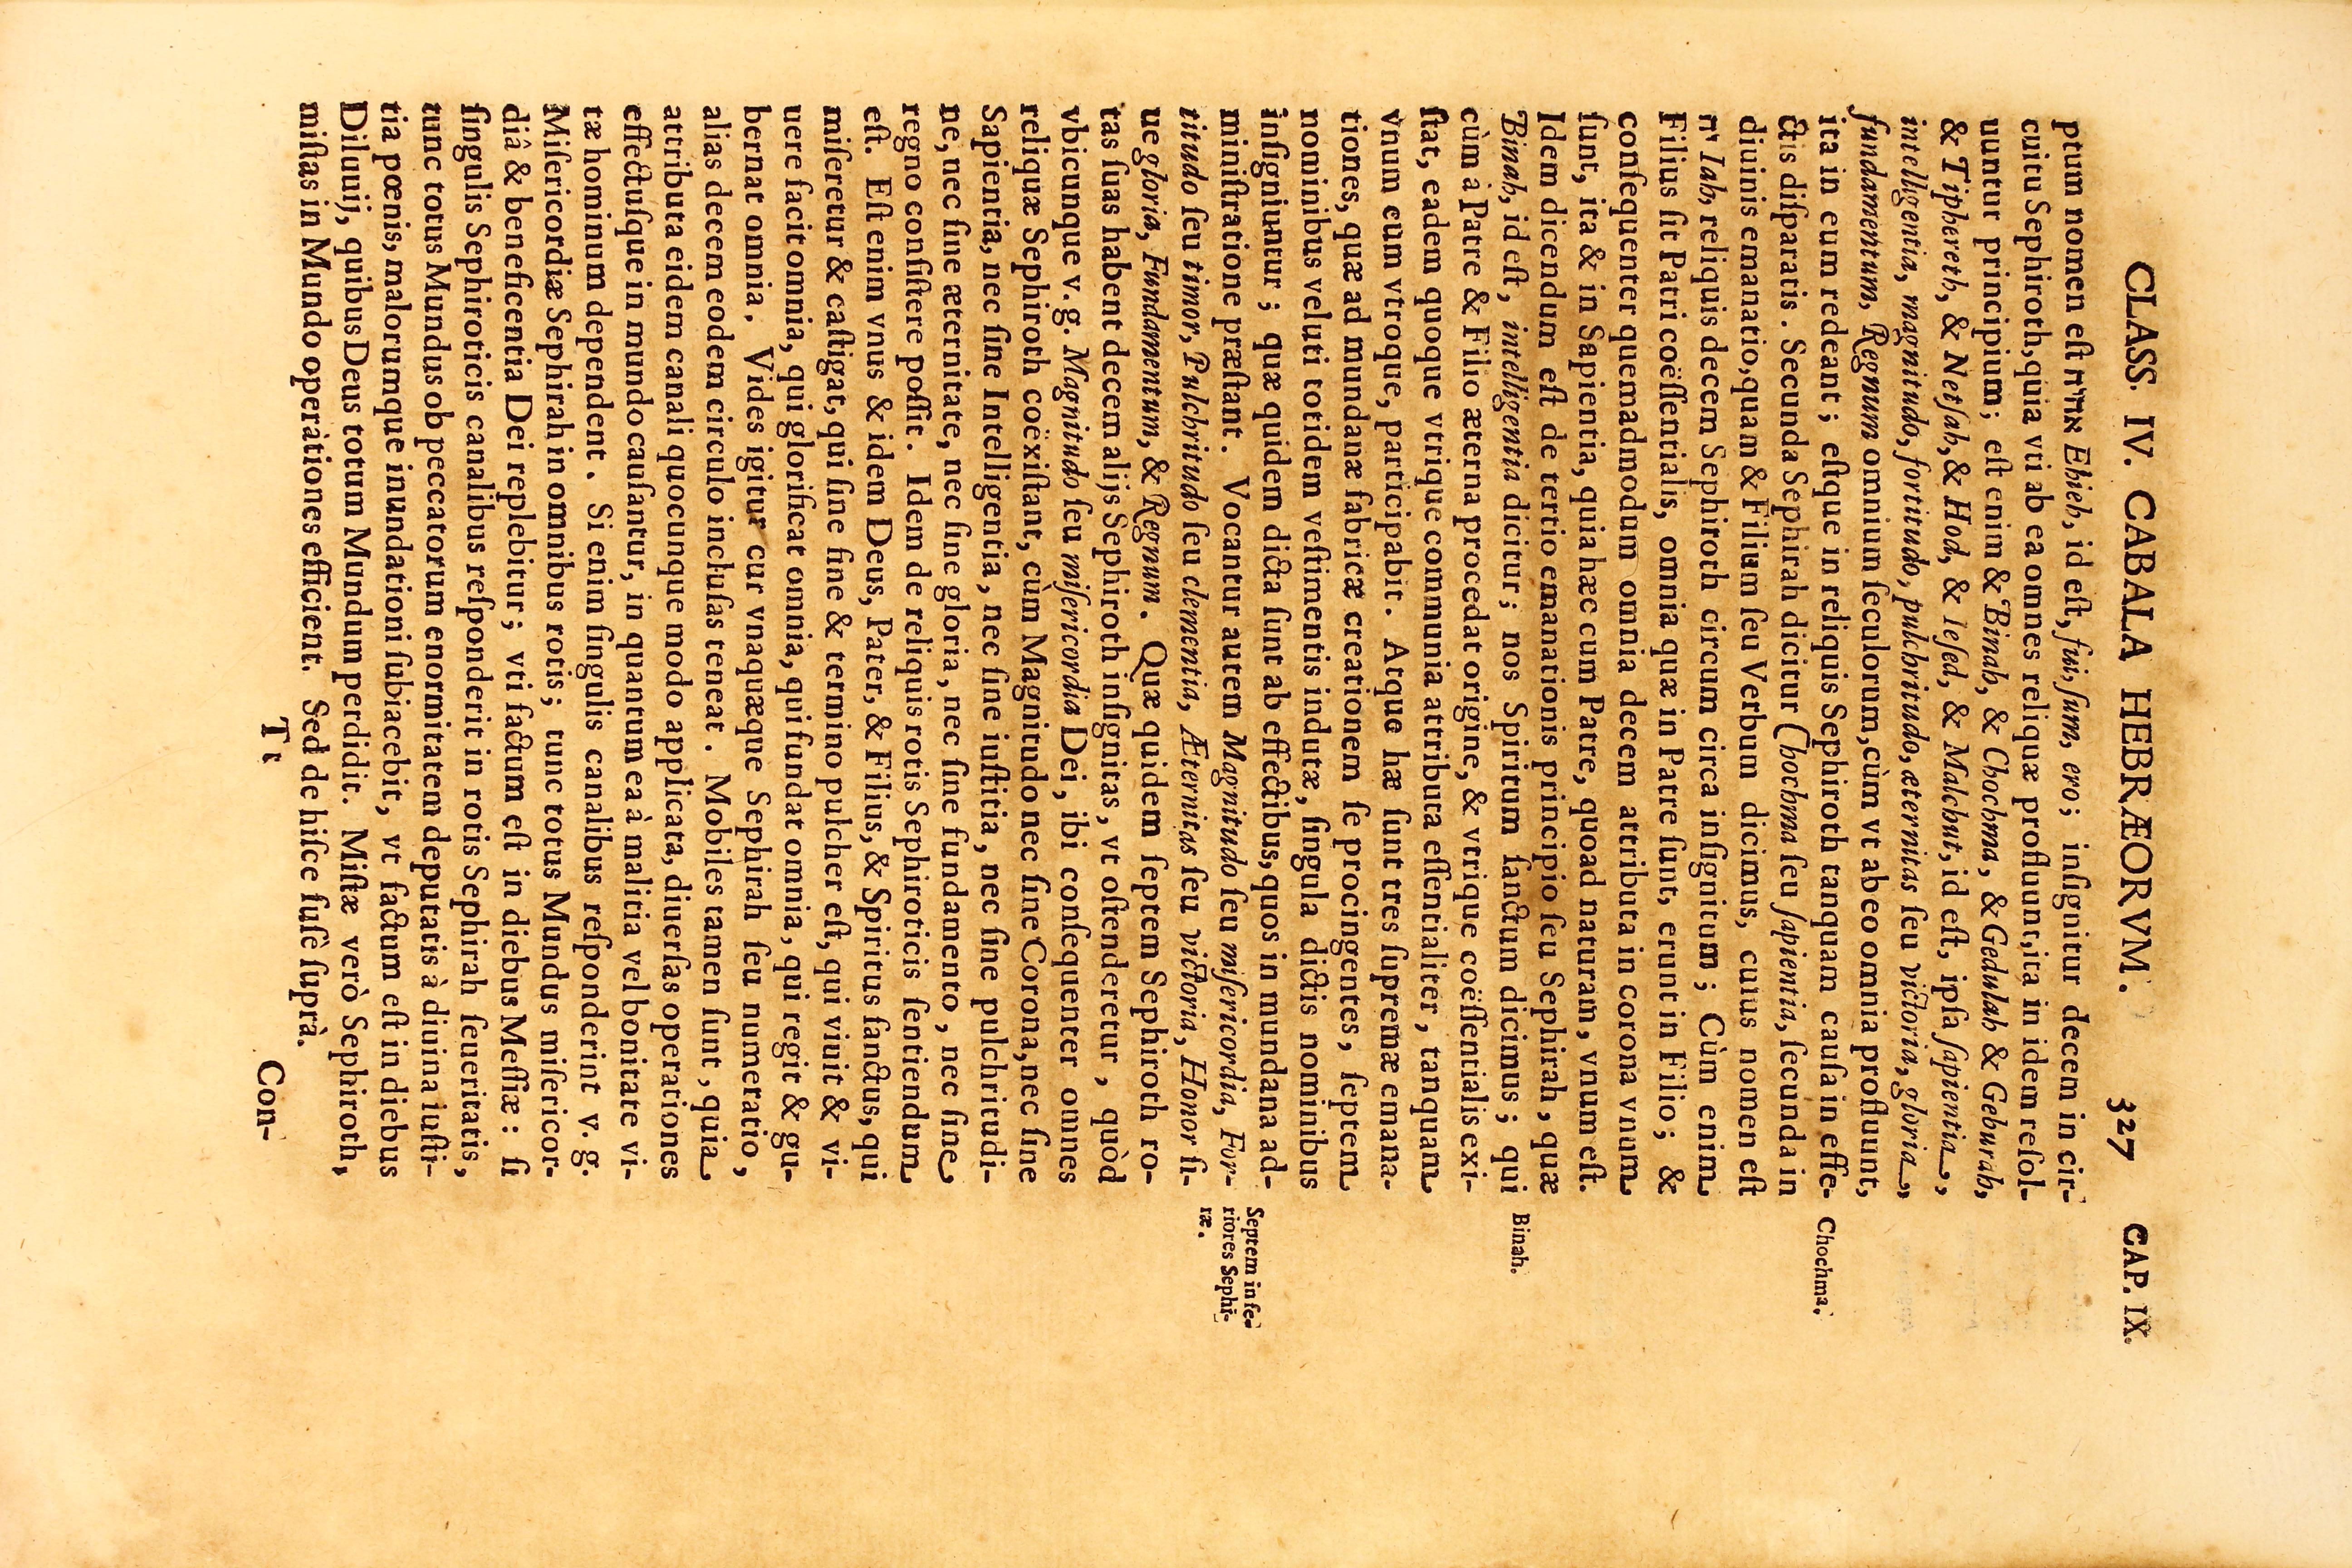 CLASS. IV. CABALA HEBRÆORVM. 327 CAP. IX.
ptum nomen eſt אהיה Ehieh, id eſt, fui, ſum, ero; inſignitur decem in cir-
cuitu Sephiroth, quia vti ab ea omnes reliquæ profluunt, ita in idem reſol-
uuntur principium; eſt enim & Binah, & Chochma, & Gedulah & Geburah,
& Tiphereth, & Netſah, & Hod, & Ieſed, & Malchut, id eſt, ipſa ſapientia,
intelligentia, magnitudo, fortitudo, pulchritudo, æternitas ſeu victoria, gloria,
fundamentum, Regnum omnium ſeculorum, cùm vt ab eo omnia profluunt,
ita in eum redeant; eſtque in reliquis Sephiroth tanquam cauſa in effe-
ctis diſparatis. Secunda Sephirah dicitur Chochma ſeu ſapientia, ſecunda in
Chochma,
diuinis emanatio, quam & Filium ſeu Verbum dicimus, cuius nomen eſt
יה Iah, reliquis decem Sephiroth circum circa inſignitum; Cùm enim
Filius ſit Patri coëſſentialis, omnia quæ in Patre ſunt, erunt in Filio; &
conſequenter quemadmodum omnia decem attributa in corona vnum
ſunt, ita & in Sapientia, quia hæc cum Patre, quoad naturam, vnum eſt.
Idem dicendum eſt de tertio emanationis principio ſeu Sephirah, quæ
Binah, id eſt, intelligentia dicitur; nos Spiritum ſanctum dicimus; qui
Binah.
cùm à Patre & Filio æterna procedat origine, & vtrique coëſſentialis exi-
ſtat, eadem quoque vtrique communia attributa eſſentialiter, tanquam
vnum cum vtroque, participabit. Atque hæ ſunt tres ſupremæ emana-
tiones, quæ ad mundanæ fabricæ creationem ſe procingentes, ſeptem
nominibus veluti totidem veſtimentis indutæ, ſingula dictis nominibus
inſigniuntur; quæ quidem dicta ſunt ab effectibus, quos in mundana ad-
miniſtratione præſtant. Vocantur autem Magnitudo ſeu miſericordia, For-
Septem infe-
riores Sephi-
ræ.
titudo ſeu timor, Pulchritudo ſeu clementia, Æternitas ſeu victoria, Honor ſi-
ue gloria, Fundamentum, & Regnum. Quæ quidem ſeptem Sephiroth ro-
tas ſuas habent decem alijs Sephiroth inſignitas, vt oſtenderetur, quòd
vbicunque v. g. Magnitudo ſeu miſericordia Dei, ibi conſequenter omnes
reliquæ Sephiroth coëxiſtant, cùm Magnitudo nec ſine Corona, nec ſine
Sapientia, nec ſine Intelligentia, nec ſine iuſtitia, nec ſine pulchritudi-
ne, nec ſine æternitate, nec ſine gloria, nec ſine fundamento, nec ſine
regno conſiſtere poſſit. Idem de reliquis rotis Sephiroticis ſentiendum
eſt. Eſt enim vnus & idem Deus, Pater, & Filius, & Spiritus ſanctus, qui
miſeretur & caſtigat, qui ſine fine & termino pulcher eſt, qui viuit & vi-
uere facit omnia, qui glorificat omnia, qui fundat omnia, qui regit & gu-
bernat omnia. Vides igitur cur vnaquæque Sephirah ſeu numeratio,
alias decem eodem circulo incluſas teneat. Mobiles tamen ſunt, quia
attributa eidem canali quocunque modo applicata, diuerſas operationes
effectuſque in mundo cauſantur, in quantum ea à malitia vel bonitate vi-
tæ hominum dependent. Si enim ſingulis canalibus reſponderint v. g.
Miſericordiæ Sephirah in omnibus rotis; tunc totus Mundus miſericor-
diâ & beneficentia Dei replebitur; vti factum eſt in diebus Meſſiæ: ſi
ſingulis Sephiroticis canalibus reſponderit in rotis Sephirah ſeueritatis,
tunc totus Mundus ob peccatorum enormitatem deputatis à diuina iuſti-
tia pœnis, malorumque inundationi ſubiacebit, vt factum eſt in diebus
Diluuij, quibus Deus totum Mundum perdidit. Miſtæ verò Sephiroth,
miſtas in Mundo operationes efficient. Sed de hiſce fuſè ſuprà.
T t
Con-